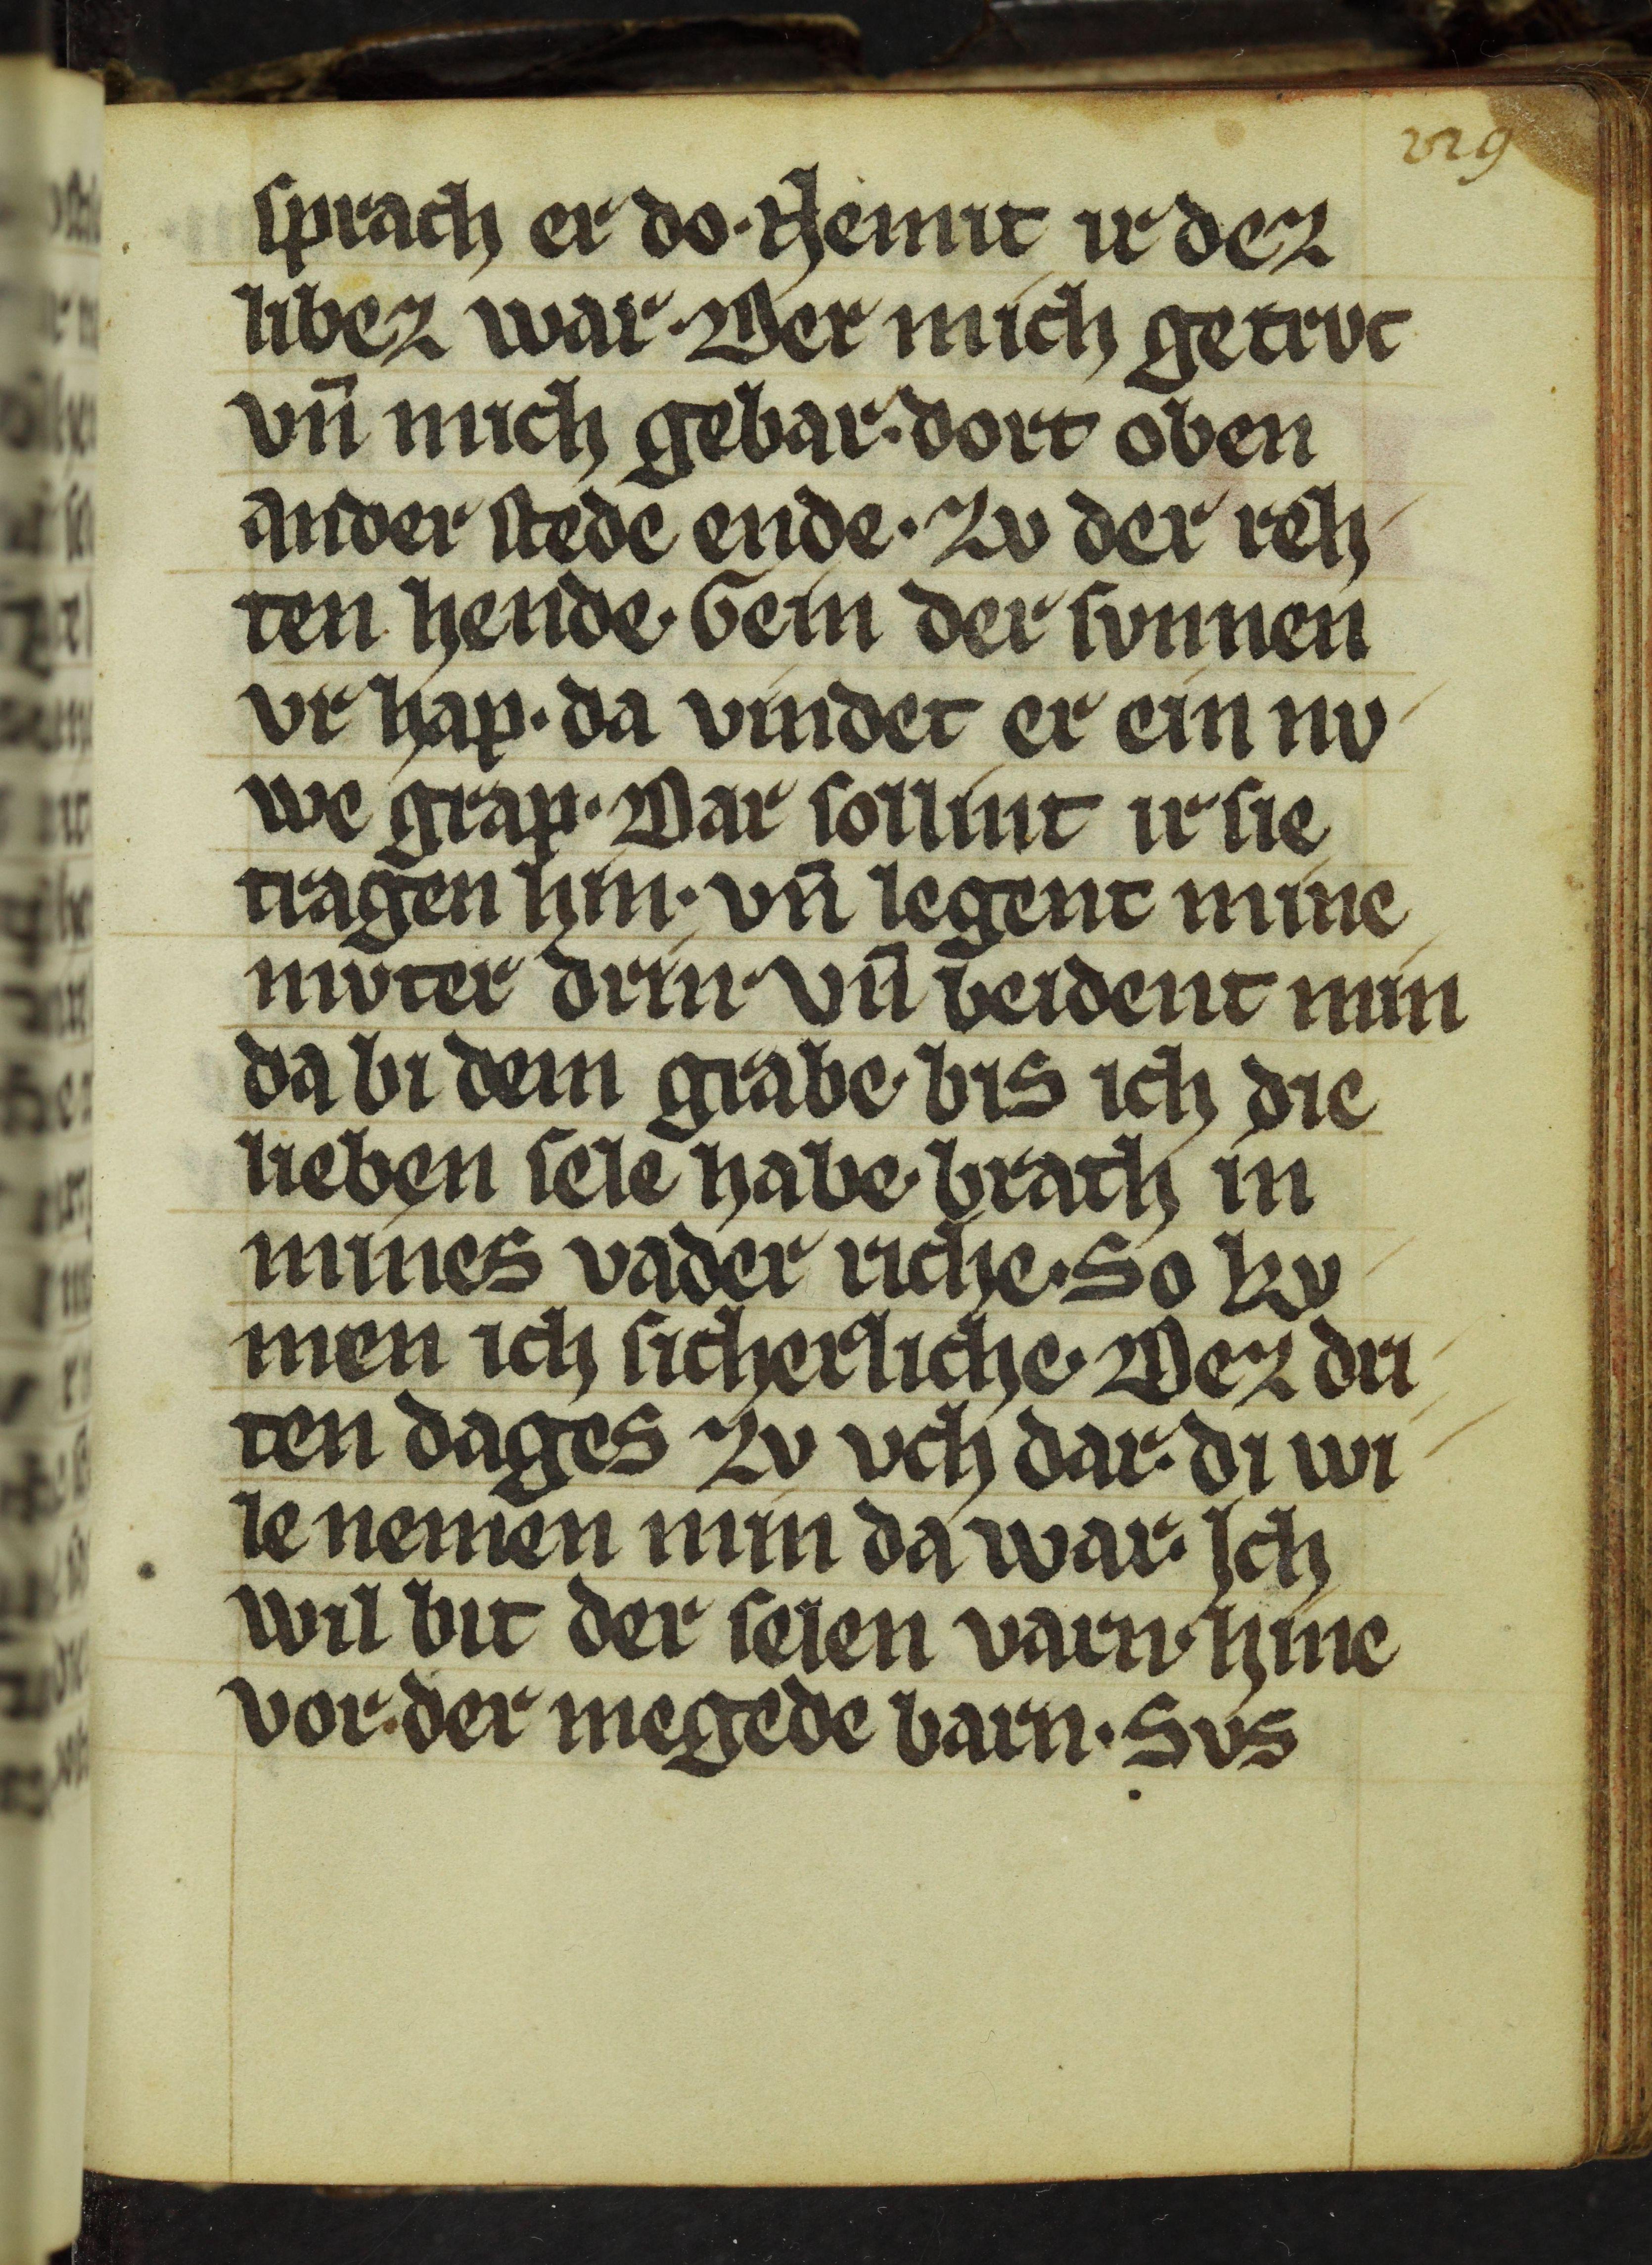 vr9
sprach er do · Nemit ir dez
libez war · Der mich getrvc
vn̄ mich gebar · dort oben
ander stede ende · Zv der reh
ten hende · Gein der svnnen
vr hap · da vindet er ein nv
we grap · Dar sollint ir sie
tragen hin · vn̄ legent mine
mvter drin · Vn̄ beident min
da bi dem grabe · bis ich die
lieben sele habe · brath in
mines vader riche · So kv
men ich sicherliche · Dez dri
ten dages Zv vch dar · di wi
le nemen min da war · Ich
wil bit der selen varn · hine
vor · der megede barn · Svs